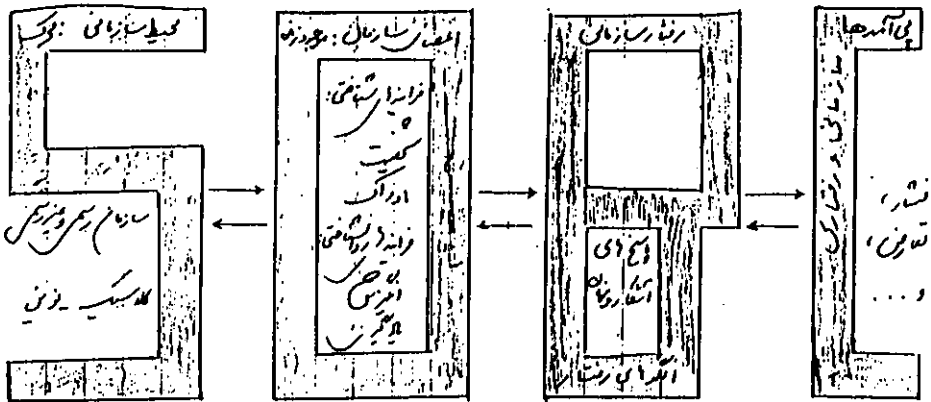 محیط سازمانی : محرک
سازمان رسمی و غیررسمی
کلاسیک - نوین
اعضای سازمان : موجود زنده
فرایندهای شناختی:
شخصیت
ادراک
فرایندهای روانشناختی:
یادگیری
رفتار سازمانی
پاسخ‌های
آشکار و نهان
الگوهای رفتار
پی‌آمدها
سازمانی و رفتاری
فشار،
تعارض،
و ...